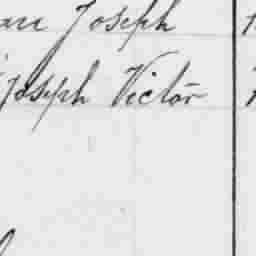 Joseph
Joseph Victor